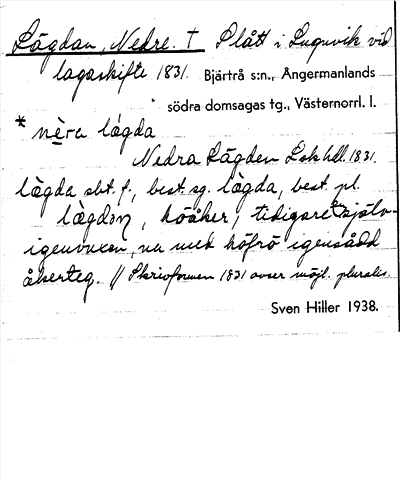 Lägdan, Nedre. † Slått i Lugnvik vid
lagaskifte 1831. Bjärtrå s:n., Ångermanlands
södra domsagas tg., Västernorrl. l.
* nèra lägda
Nedra Lägden Lsk hdl. 1831.
lägda sbt. f., best. sg. lägda, best. pl.
höåker, tidigare själv-
igenvuxen, nu med höfrö igensådd
åkerteg. // Skrivformen 1831 avser möjl. pluralis.
Sven Hiller 1938.